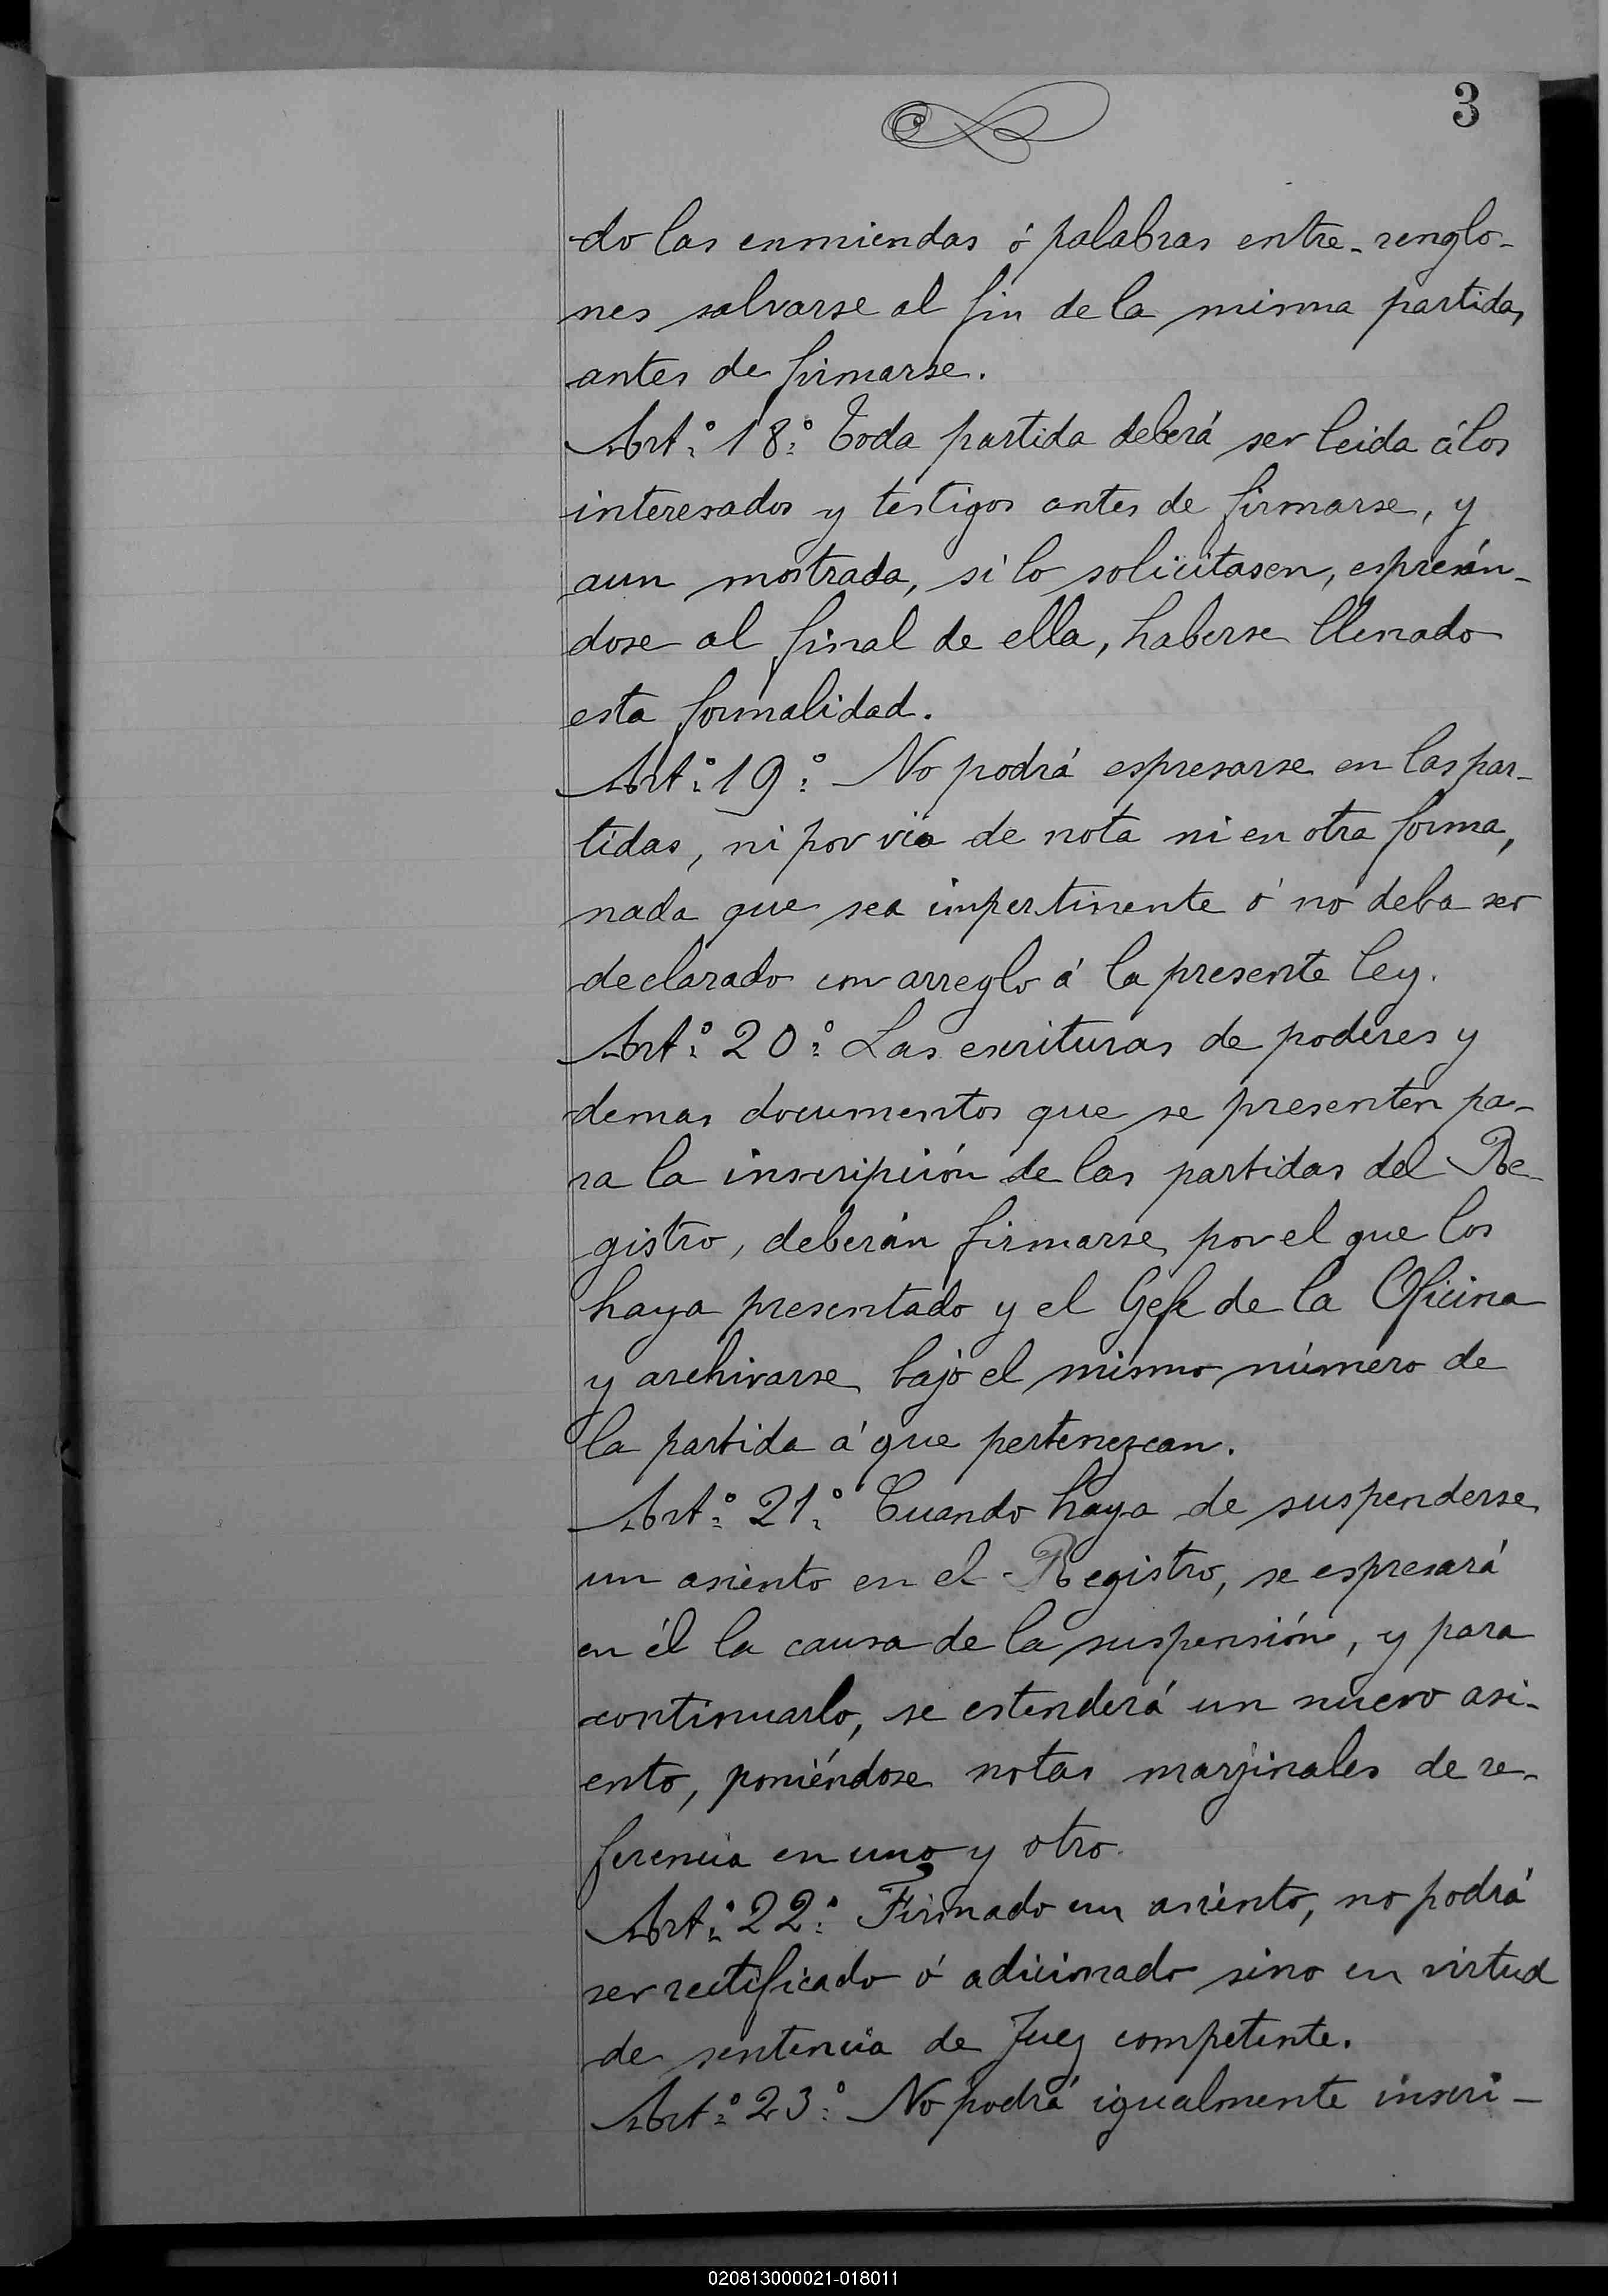 3
do las enmiendas ó palabras entre-renglo-
nes salvarse al fin de la misma partida,
antes de firmarse.
Art.º 18.º Toda partida deberá ser leida á los
interesados y testigos antes de firmarse, y
aun mostrada, si lo solicitasen, espresán-
dose al final de ella, haberse llenado
esta formalidad.
Art.º 19.º No podrá espresarse en las par-
tidas, ni por via de nota ni en otra forma,
nada que sea impertinente ó no deba ser
declarado con arreglo á la presente ley.
Art.º 20.º Las escrituras de poderes y
demas documentos que se presenten pa-
ra la inscripción de las partidas del Re-
gistro, deberán firmarse por el que los
haya presentado y el Gefe de la Oficina
y archivarse bajo el mismo número de
la partida á que pertenezcan.
Art.º 21.º Cuando haya de suspenderse
un asiento en el Registro, se espresará
en él la causa de la suspensión, y para
continuarlo, se estenderá un nuevo asi-
ento, poniéndose notas marjinales de re-
ferencia en uno y otro.
Art.º 22.º Firmado un asiento, no podrá
ser rectificado ó adicionado sino en virtud
de sentencia de Juez competente.
Art.º 23.º No podrá igualmente inscri-
020813000021-018011